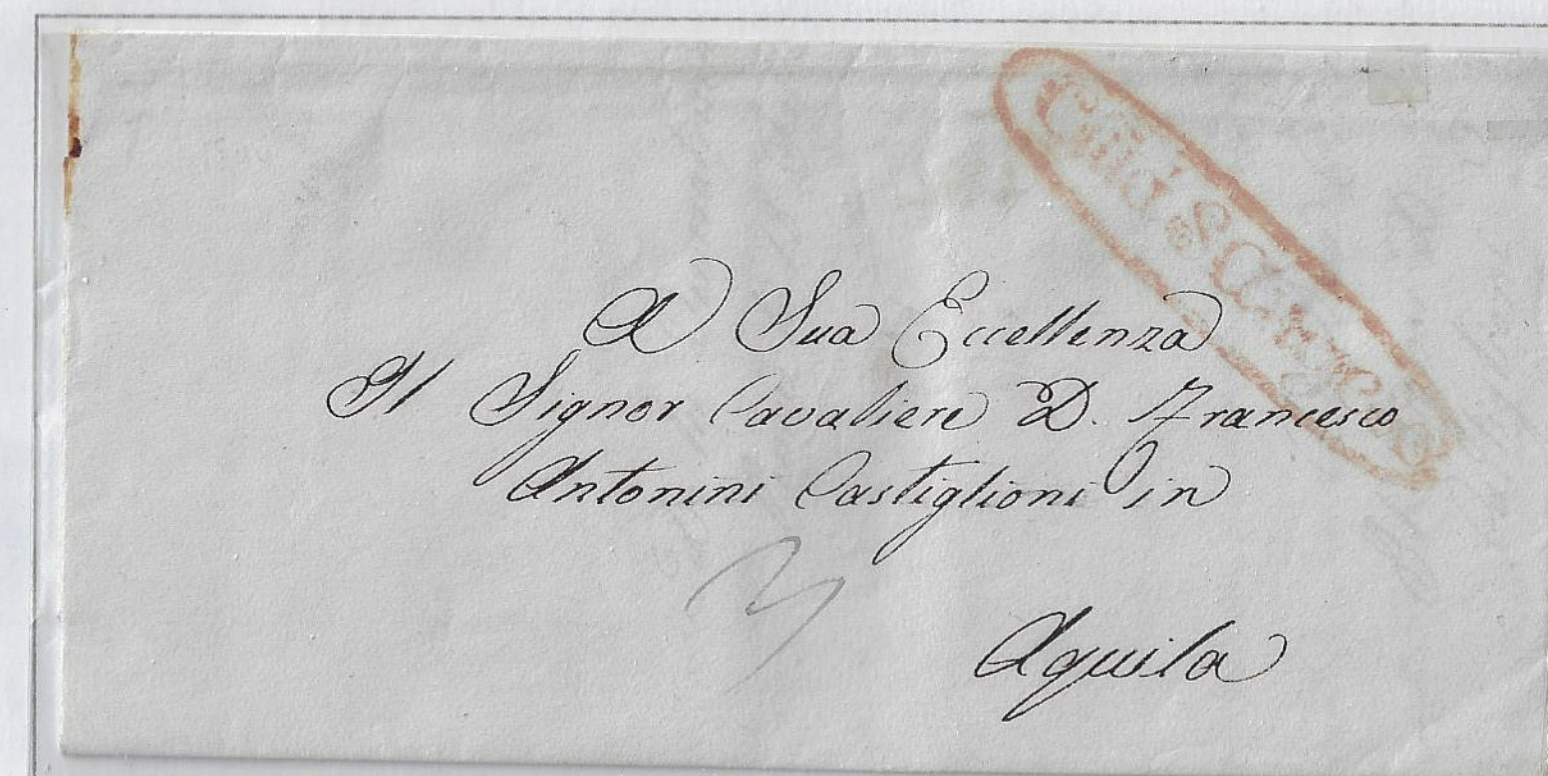 Città S. Angelo
A Sua Eccellenza
Il Signor Cavaliere D. Francesco
Antonini Castiglioni in
Aquila